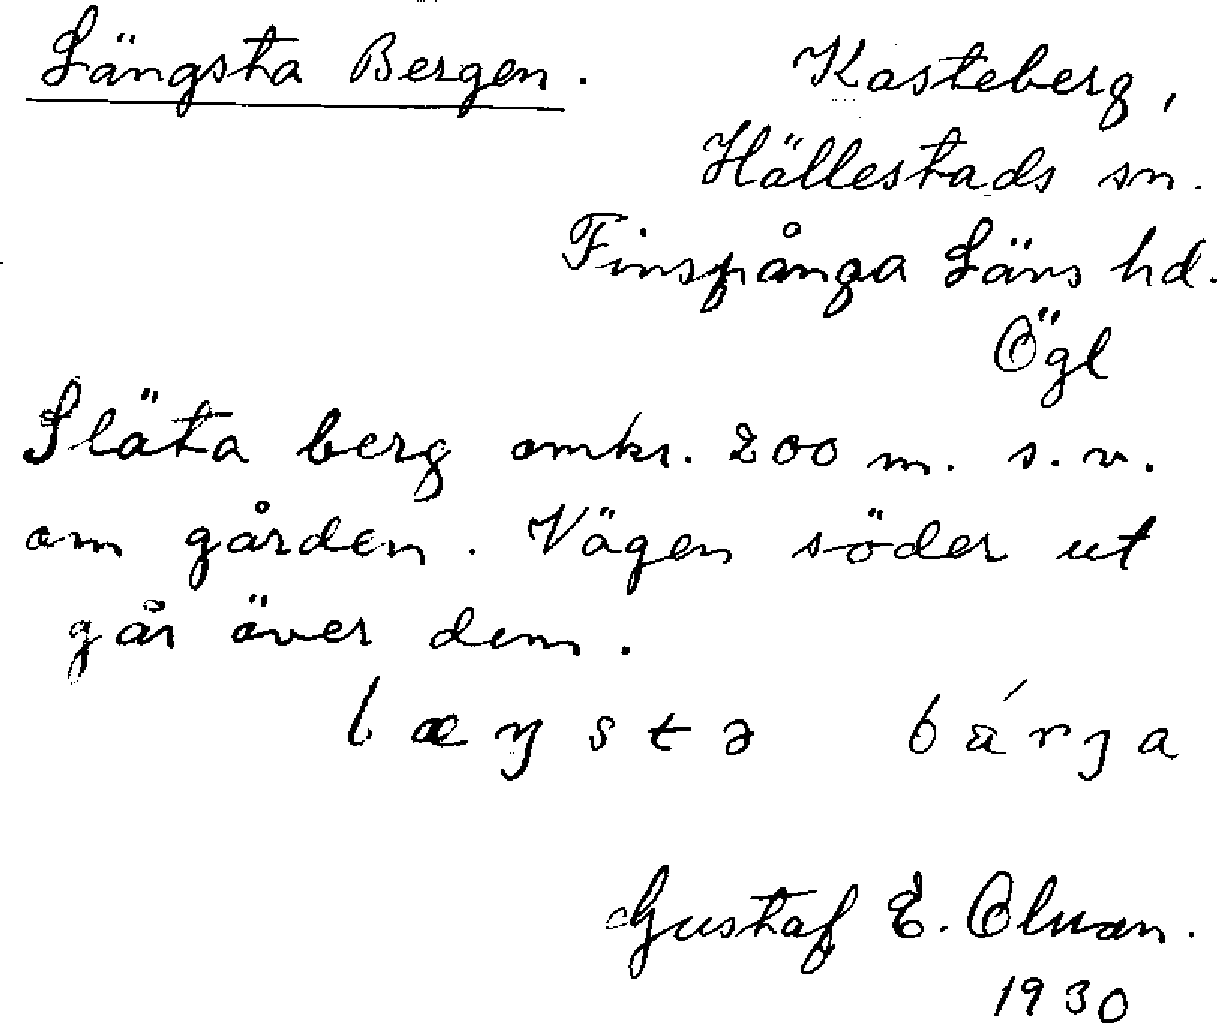 Längsta Bergen.
Kasteberg,
Hällestads sn.
Finspånga Läns hd.
Ögl
Släta berg omkr. 200 m. s.v.
om gården. Vägen söder ut
går över dem.
læŋstə bárja
Gustaf E.
1930